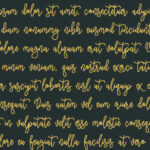 ipsum dolor sit amet, consectetuer adipi
diam nonummy nibh euismod tincidunt
dolore magna aliquam erat volutpat.
minim veniam, quis nostrud exerci tatio
suscipit lobortis nisl ut aliquip ex e
consequat. Duis autem vel eum iriure dolor
in vulputate velit esse molestie conseq
dolore eu feugiat nulla facilisis at vero